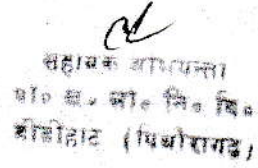 सहायक अभियन्ता
प्रा० ख० लो० नि० वि०
डीडीहाट (पिथौरागढ़)